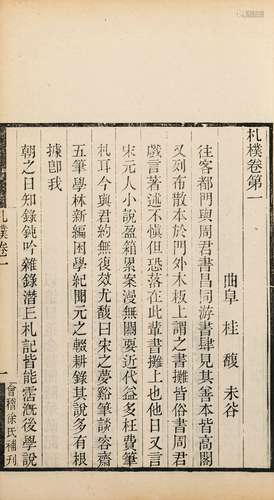 札樸卷第一
曲阜 桂馥 未谷
往客都門與周君書昌同游書肆見其善本皆高閣
又列布散本於門外木板上謂之書攤皆俗書周君
戲言著述不慎但恐落在此輩書攤上也他日又言
宋元人小說盈箱累案漫無關要近代益多枉費筆
札耳今與君約無復效尤馥曰宋之夢谿筆談容齋
五筆學林新編困學紀聞元之輟耕錄其說多有根
據卽我
朝之日知錄鈍吟雜錄潛丘札記皆能霑漑後學說
札樸卷一
一
會稽徐氏補刊